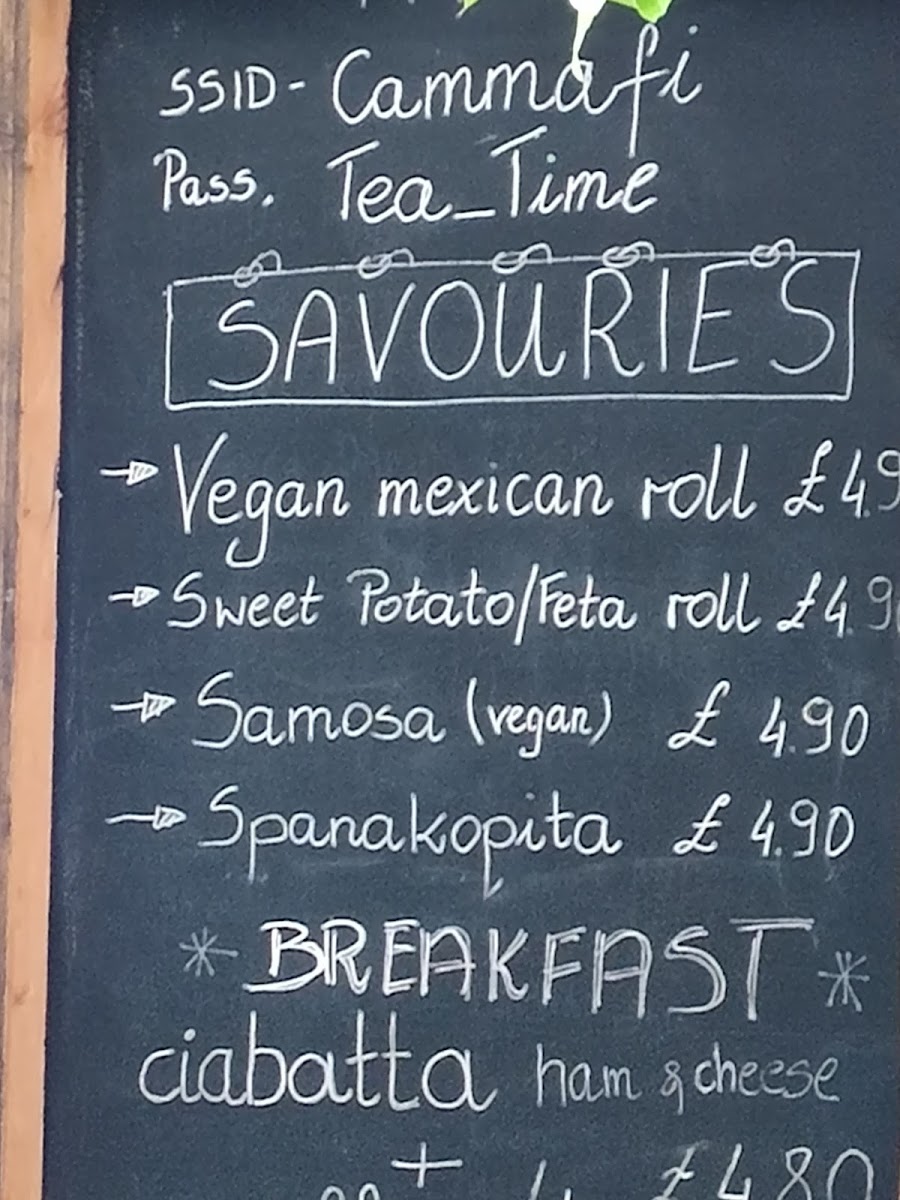 SSID - Cammafi
Pass. Tea_Time
SAVOURIES
Vegan mexican roll £4.9
Sweet Potato/Feta roll £4.9
Samosa (vegan) £ 4.90
Spanakopita £ 4.90
* BREAKFAST *
ciabatta ham & cheese
+ £4.80